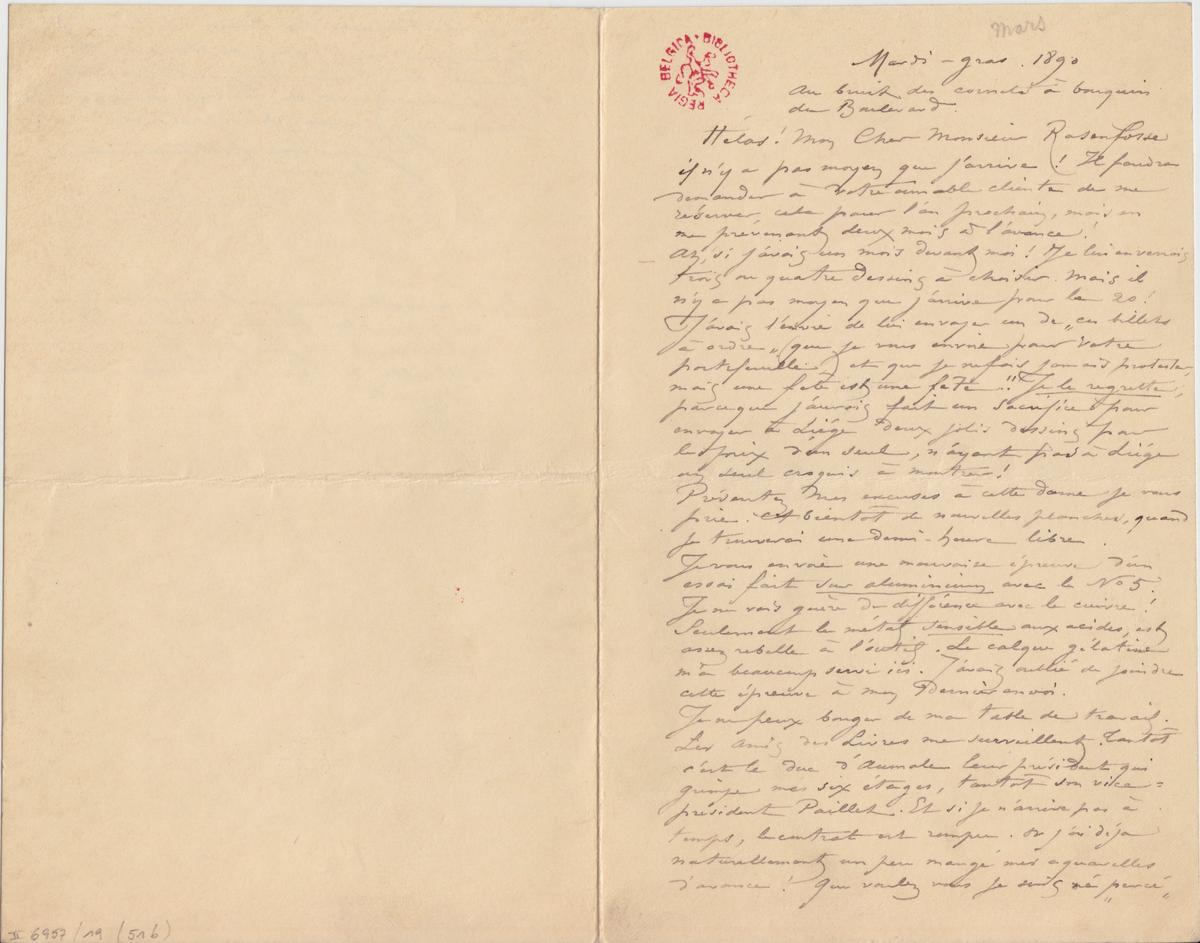 Mars
BELGICA • BIBLIOTHECA REGIA
Mardi-gras. 1890
au bruit des cornets à bouquin
du Boulevard.
Hélas! Mon Cher Monsieur Rasenfosse
il n'y a pas moyen que j'arrive! Il faudra
demander à votre aimable cliente de me
réserver cela pour l'an prochain, mais en
me prévenant deux mois à l'avance!
Ah, si j'avais un mois devant moi! Je lui enverrais
trois ou quatre dessins à choisir. Mais il
n'y a pas moyen que j'arrive pour le 20!
J'avais l'envie de lui envoyer un de „ces billets
à ordre„ (que je vous envoie pour votre
portefeuille) et que je ne fais jamais protester,
mais une fête est une fête!! Je le regrette,
parceque j'aurais fait un sacrifice pour
envoyer à Liége deux jolis dessins pour
le prix d'un seul, n'ayant pas à Liége
un seul croquis à montrer!
Présentez mes excuses à cette dame je vous
prie. Et bientôt de nouvelles planches, quand
je trouverai une demi-heure libre.
Je vous envoie une mauvaise épreuve d'un
essai fait sur aluminium avec le No 5.
Je ne vois guère de différence avec le cuivre!
Seulement le métal sensible aux acides, est
assez rebelle à l'outil. Le calque gélatine
m'a beaucoup servi ici. J'avais oublié de joindre
cette épreuve à mon dernier envoi.
Je ne peux bouger de ma table de travail.
Les Amis des Livres me surveillent. Tantôt
c'est le duc d'Aumale leur président qui
grimpe mes six étages, tantôt son vice-
président Paillet. Et si je n'arrive pas à
temps, le contrat est rompu. Or j'ai déja
naturellement un peu mangé mes aquarelles
d'avance! Que voulez vous je suis né „percé„
II 6957/19 (51b)